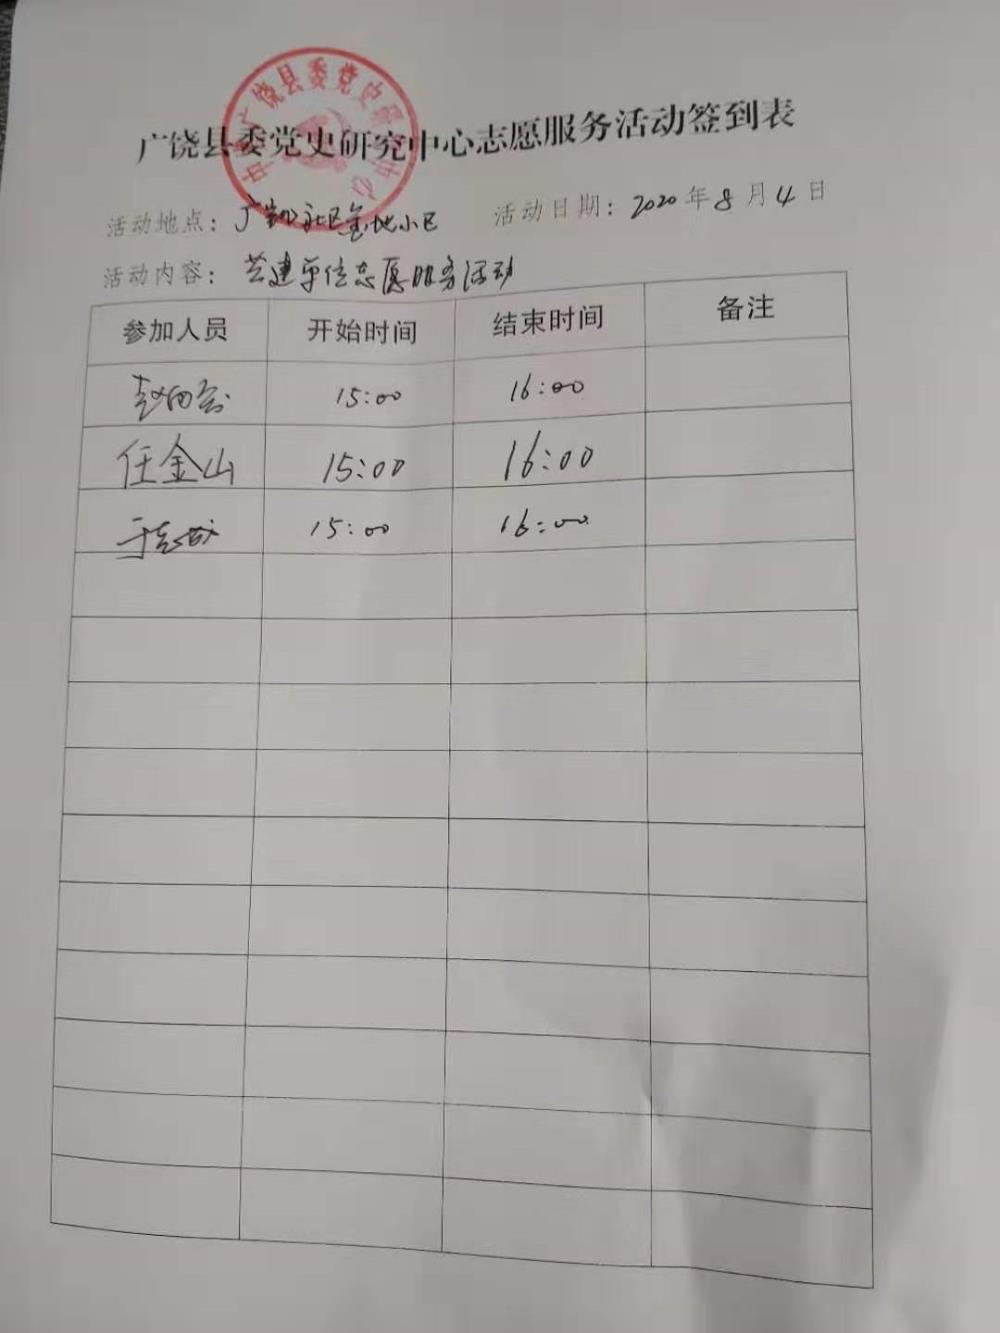 中共广饶县委党史研究中心
广饶县委党史研究中心志愿服务活动签到表
活动地点：广 社区金地小区 活动日期：2020年8月4日
活动内容：共建单位志愿服务活动
参加人员 开始时间 结束时间 备注
15:00 16:00
任金山 15:00 16:00
15:00 16:00